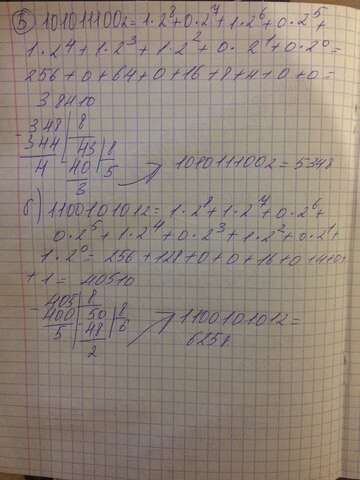 5) 101011100₂ = 1·2⁸+0·2⁷+1·2⁶+0·2⁵+
1·2⁴+1·2³+1·2²+0·2¹+0·2⁰=
256+0+64+0+16+8+4+0+0=
348₁₀
-348 | 8
344 | 43 | 8
4 40 5
3
101011100₂=534₈
б) 110010101₂= 1·2⁸+1·2⁷+0·2⁶+
0·2⁵+1·2⁴+0·2³+1·2²+0·2¹+
1·2⁰= 256+128+0+0+16+0+4+0+
+1= 405₁₀
-405 | 8
400 | 50 | 8
5 48 6
2
110010101₂=
625₈